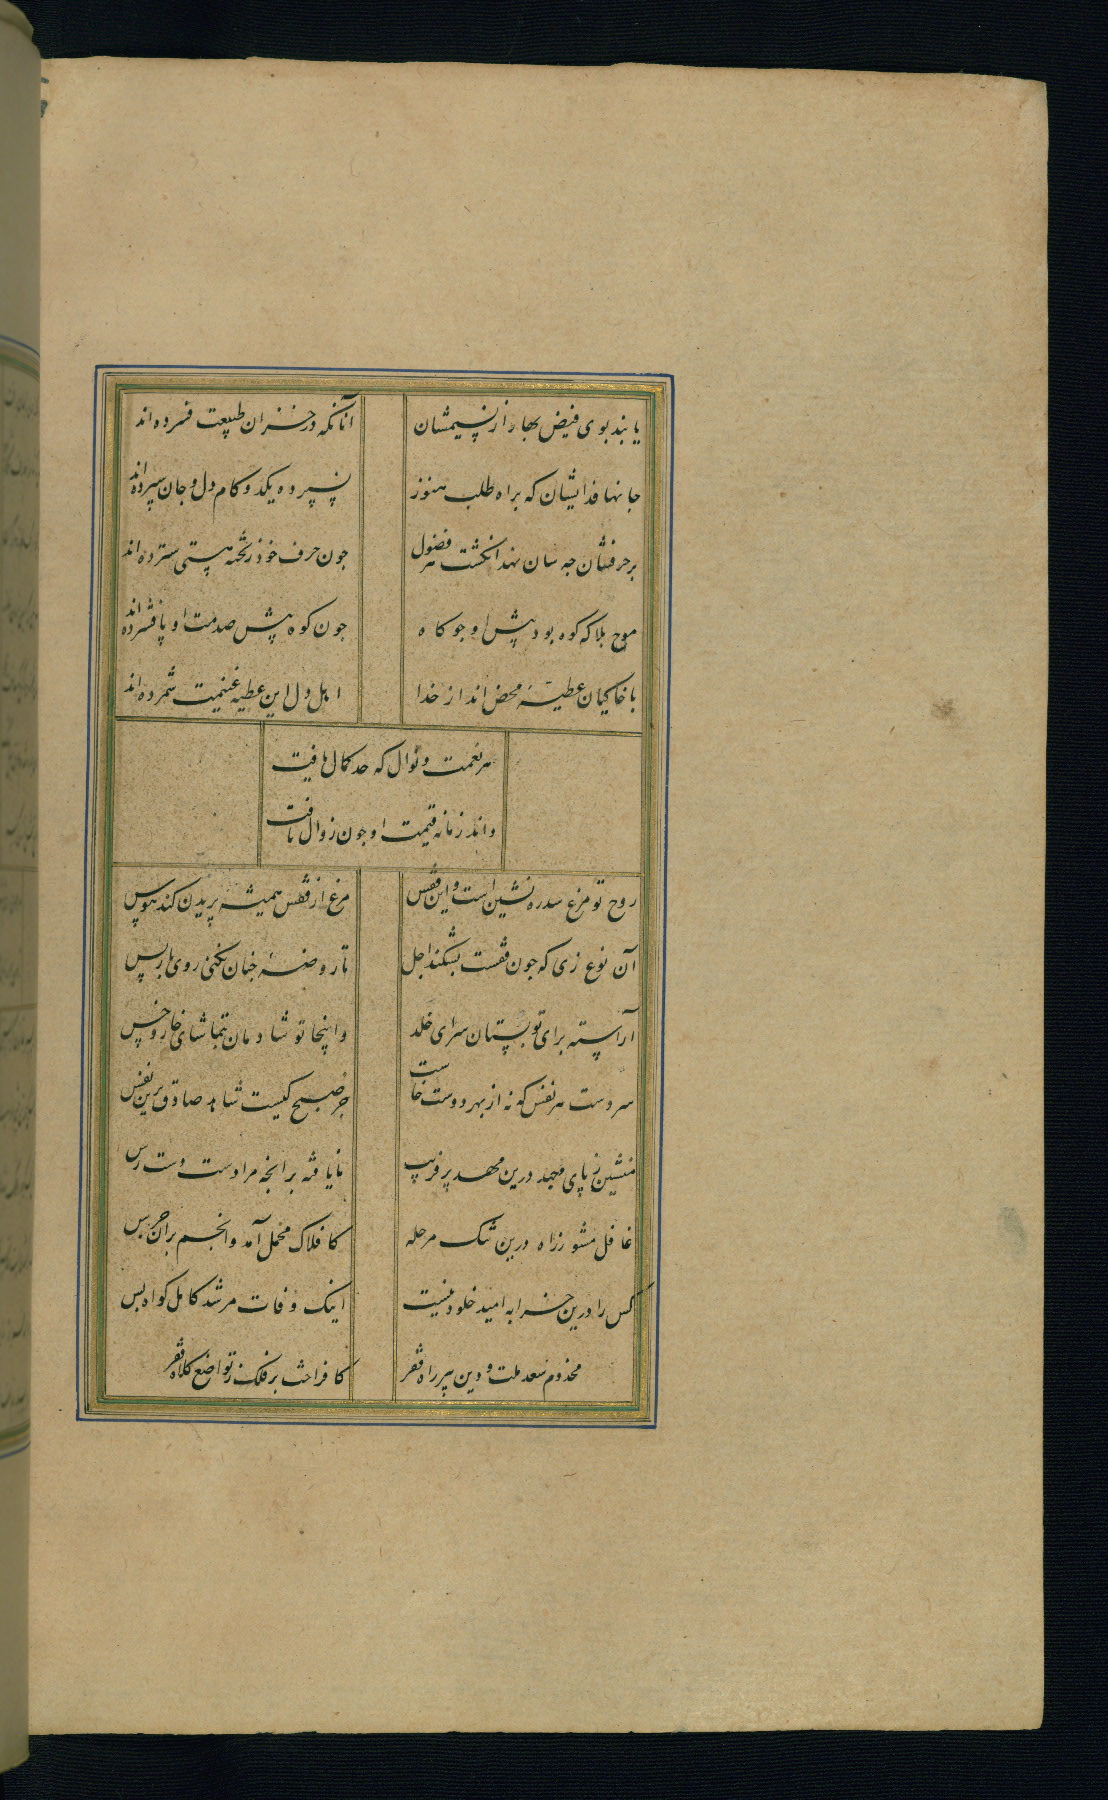 یابند بوی فیض بهار از نسیمشان
آنانکه در خزان طبیعت فسرده اند
جانها فدایشان که براه طلب هنوز
نسپرده یکدو کام دل و جان سپرده اند
بر حرفشان جه سان نهد انکشت هر فضول
جون حرف خود ز تخته هستی سترده اند
موج بلا که کوه بود پیش او جو کاه
جون کوه پیش صدمت او پا فشرده اند
با خاکیان عطیه محض اند از خدا
اهل دل این عطیه غنیمت شمرده اند
هر نعمت و نوال که حد کمال یافت
داند زمانه قیمت او جون زوال یافت
روح تو مرغ سدره نشین است و این قفس
مرغ از قفس همیشه پریدن کند هوس
آن نوع زی که جون قفست بشکند اجل
تا روضه جنان نکنی روی باز پس
آراسته برای تو بستان سرای خلد
واینجا تو شادمان بتماشای خار و خس
سردست هر نفس که نه از بهر دوست خاست
جز صبح کیست شاهد صادق برین نفس
منشین ز پای جهد درین مهد پر فریب
نایافته برانجه مرادست دست رس
غافل مشو ز راه درین تنک مرحله
کافلاک محمل آمد و انجم بران جرس
کس را درین خرابه امید خلود نیست
اینک وفات مرشد کامل کواه بس
مخدوم سعد ملت و دین پیر راه فقر
کافراخت بر فلک ز تواضع کلاه فقر